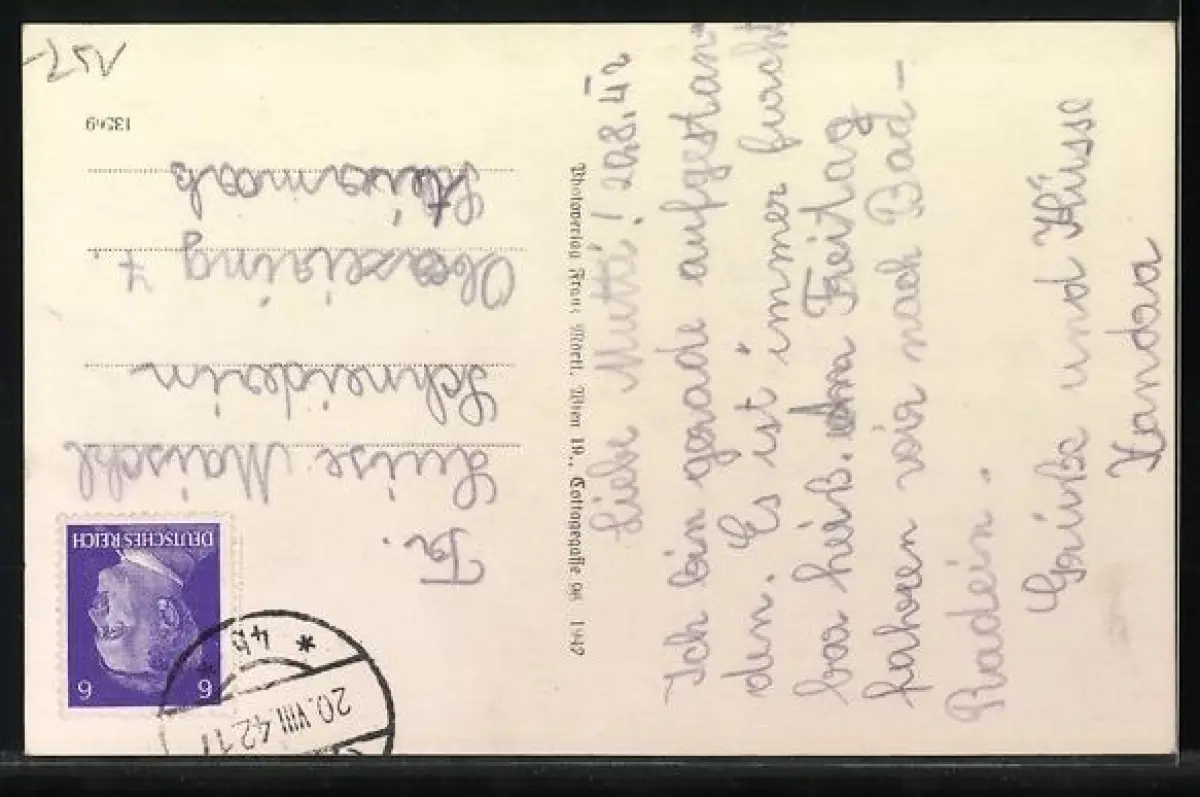 Liebe Mutti! 20.8.42
Ich bin gerade aufgestan-
den. Es ist immer furcht
bar heiß. Am Freitag
fahren wir nach Bad-
Radein.
Grüße und Küsse
Photoverlag Franz Mörtl, Wien 19., Cottagegasse 96 1942
DEUTSCHES REICH
6 6
4b
*
20.VIII.42.17
Fr.
Luise
Schneiderin
Obozeiring 7.
Steiermark
13549